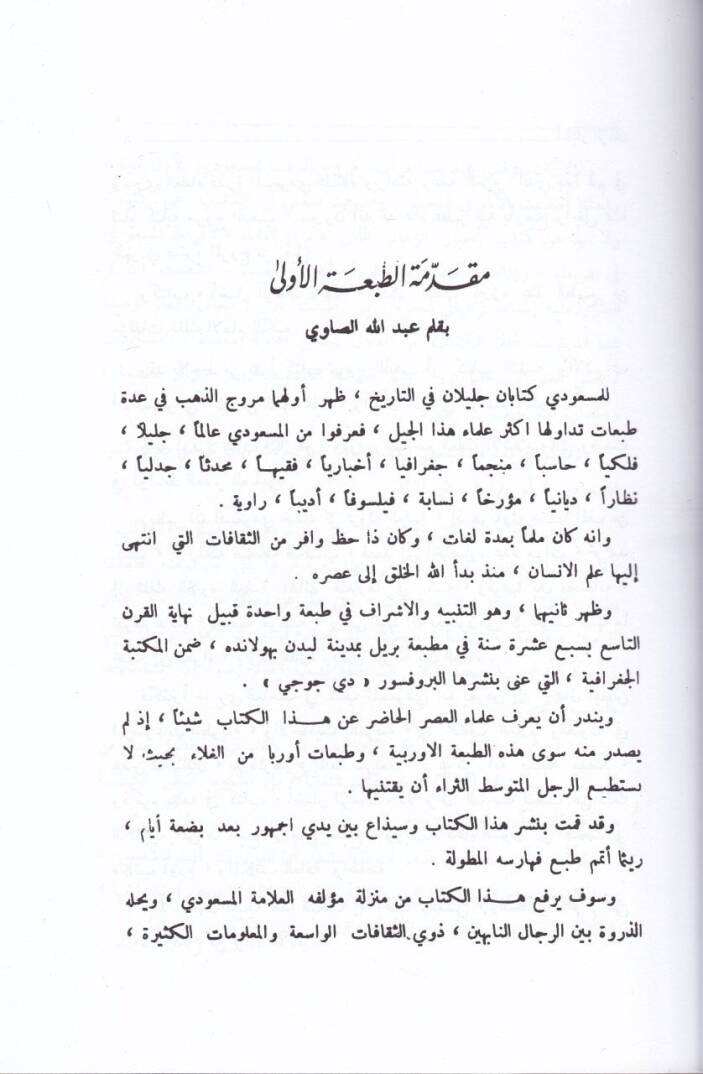 مقدّمة الطبعة الأولى
بقلم عبد الله الصاوي
للمسعودي كتابان جليلان في التاريخ ، ظهر أولهما مروج الذهب في عدة
طبعات تداولها اكثر علماء هذا الجيل ، فعرفوا من المسعودي عالماً ، جليلاً ،
فلكياً ، حاسباً ، منجماً ، جغرافيا ، أخبارياً ، فقيهاً ، محدثاً ، جدلياً ،
نظاراً ، ديانياً ، مؤرخاً ، نسابة ، فيلسوفاً ، أديباً ، راوية .
وانه كان ملماً بعدة لغات ، وكان ذا حظ وافر من الثقافات التي انتهى
إليها علم الانسان ، منذ بدأ الله الخلق إلى عصره .
وظهر ثانيهما ، وهو التنبيه والاشراف في طبعة واحدة قبيل نهاية القرن
التاسع بسبع عشرة سنة في مطبعة بريل بمدينة ليدن بهولانده ، ضمن المكتبة
الجغرافية ، التي عنى بنشرها البروفسور « دي جوجي » .
ويندر أن يعرف علماء العصر الحاضر عن هذا الكتاب شيئاً ، إذ لم
يصدر منه سوى هذه الطبعة الاوربية ، وطبعات أوربا من الغلاء بحيث لا
يستطيع الرجل المتوسط الثراء أن يقتنيها .
وقد قمت بنشر هذا الكتاب وسيذاع بين يدي الجمهور بعد بضعة أيام ،
ريثما أتمم طبع فهارسه المطولة .
وسوف يرفع هذا الكتاب من منزلة مؤلفه العلامة المسعودي ، ويحله
الذروة بين الرجال النابهين ، ذوي الثقافات الواسعة والمعلومات الكثيرة ،